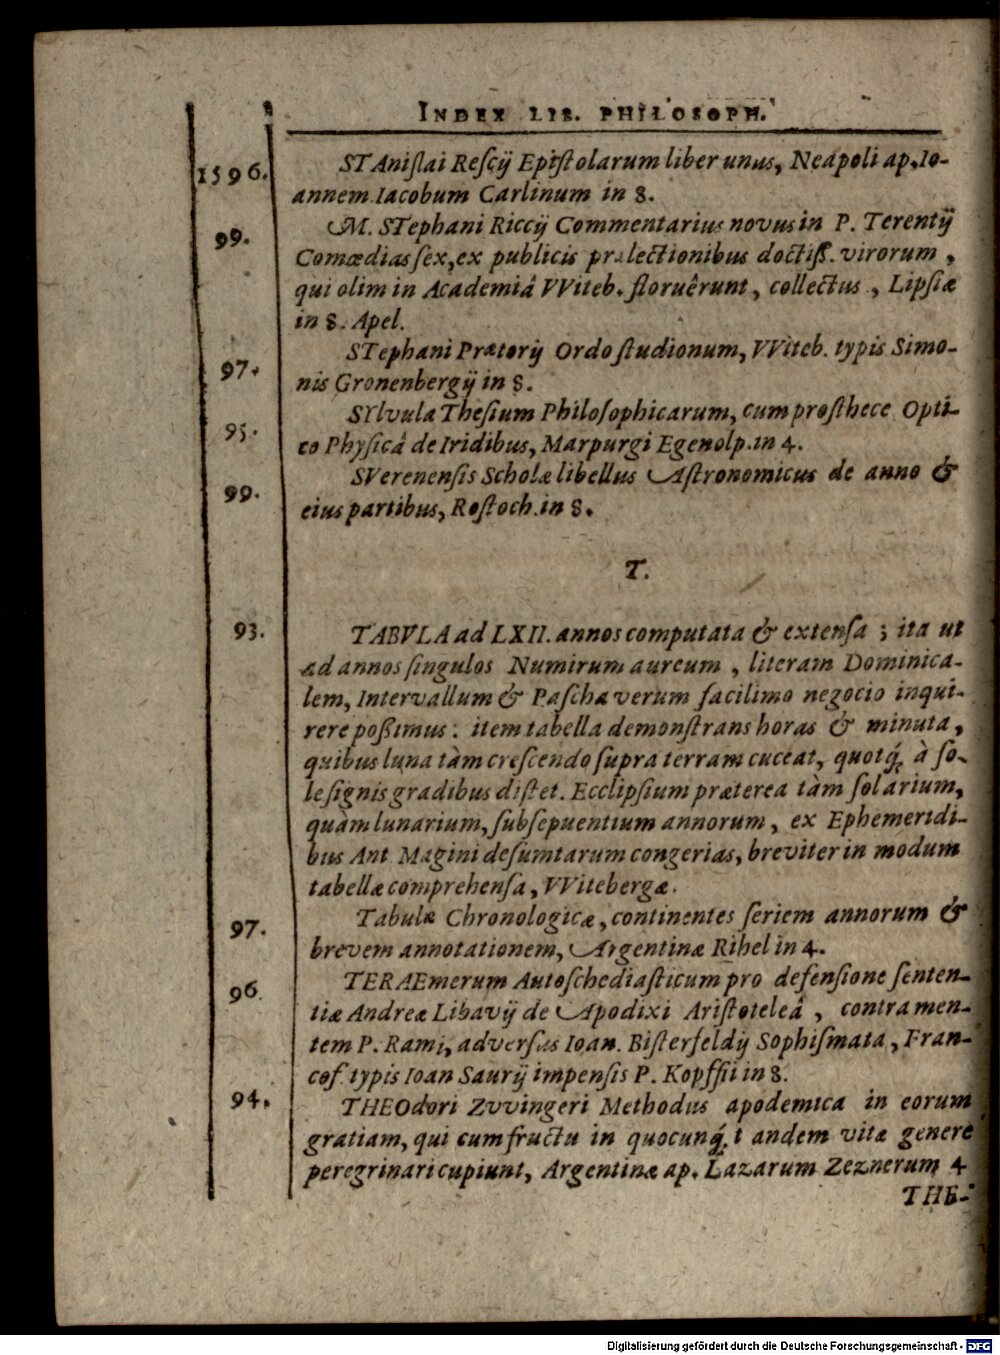 INDEX LIB. PHILOSOPH.
1596. STAniſlai Reſcij Epiſtolarum liber unus, Neapoli ap. Io-
annem Iacobum Carlinum in 8.
99. M. STephani Riccij Commentarius novus in P. Terentij
Comœdias ſex, ex publicis prælectionibus doctiſſ. virorum,
qui olim in Academiâ VViteb. floruêrunt, collectus, Lipſiæ
in 8. Apel.
97. STephani Prætorij Ordo ſtudionum, VViteb. typis Simo-
nis Gronenbergij in 8.
95. SYlvula Theſium Philoſophicarum, cum proſthece Opti-
co Phyſicâ de Iridibus, Marpurgi Egenolp. in 4.
99. SVerenenſis Scholæ libellus Aſtronomicus de anno &
eius partibus, Roſtoch. in 8.
T.
93. TABVLA ad LXII. annos computata & extenſa; ita ut
ad annos ſingulos Numirum aureum, literam Dominica-
lem, Intervallum & Paſcha verum facilimo negocio inqui-
rere poßimus: item tabella demonſtrans horas & minuta,
quibus luna tàm creſcendo ſupra terram cuceat, quotq́; à ſo-
le ſignis gradibus diſtet. Ecclipſium præterea tàm ſolarium,
quàm lunarium, ſubſepuentium annorum, ex Ephemeridi-
bus Ant. Magini deſumtarum congerias, breviter in modum
tabellæ comprehenſa, VVitebergæ.
97. Tabulæ Chronologicæ, continentes ſeriem annorum &
brevem annotationem, Argentinæ Rihel in 4.
96. TERAEmerum Autoſchediaſticum pro defenſione ſenten-
tiæ Andreæ Libavij de Apodixi Ariſtoteleâ, contra men-
tem P. Rami, adverſus Ioan. Biſterfeldij Sophiſmata, Fran-
cof. typis Ioan Saurij impenſis P. Kopffii in 8.
94. THEOdori Zvvingeri Methodus apodemica in eorum
gratiam, qui cum fructu in quocunq́; t andem vitæ genere
peregrinari cupiunt, Argentinæ ap. Lazarum Zeznerum 4
THE-
Digitalisierung gefördert durch die Deutsche Forschungsgemeinschaft - DFG